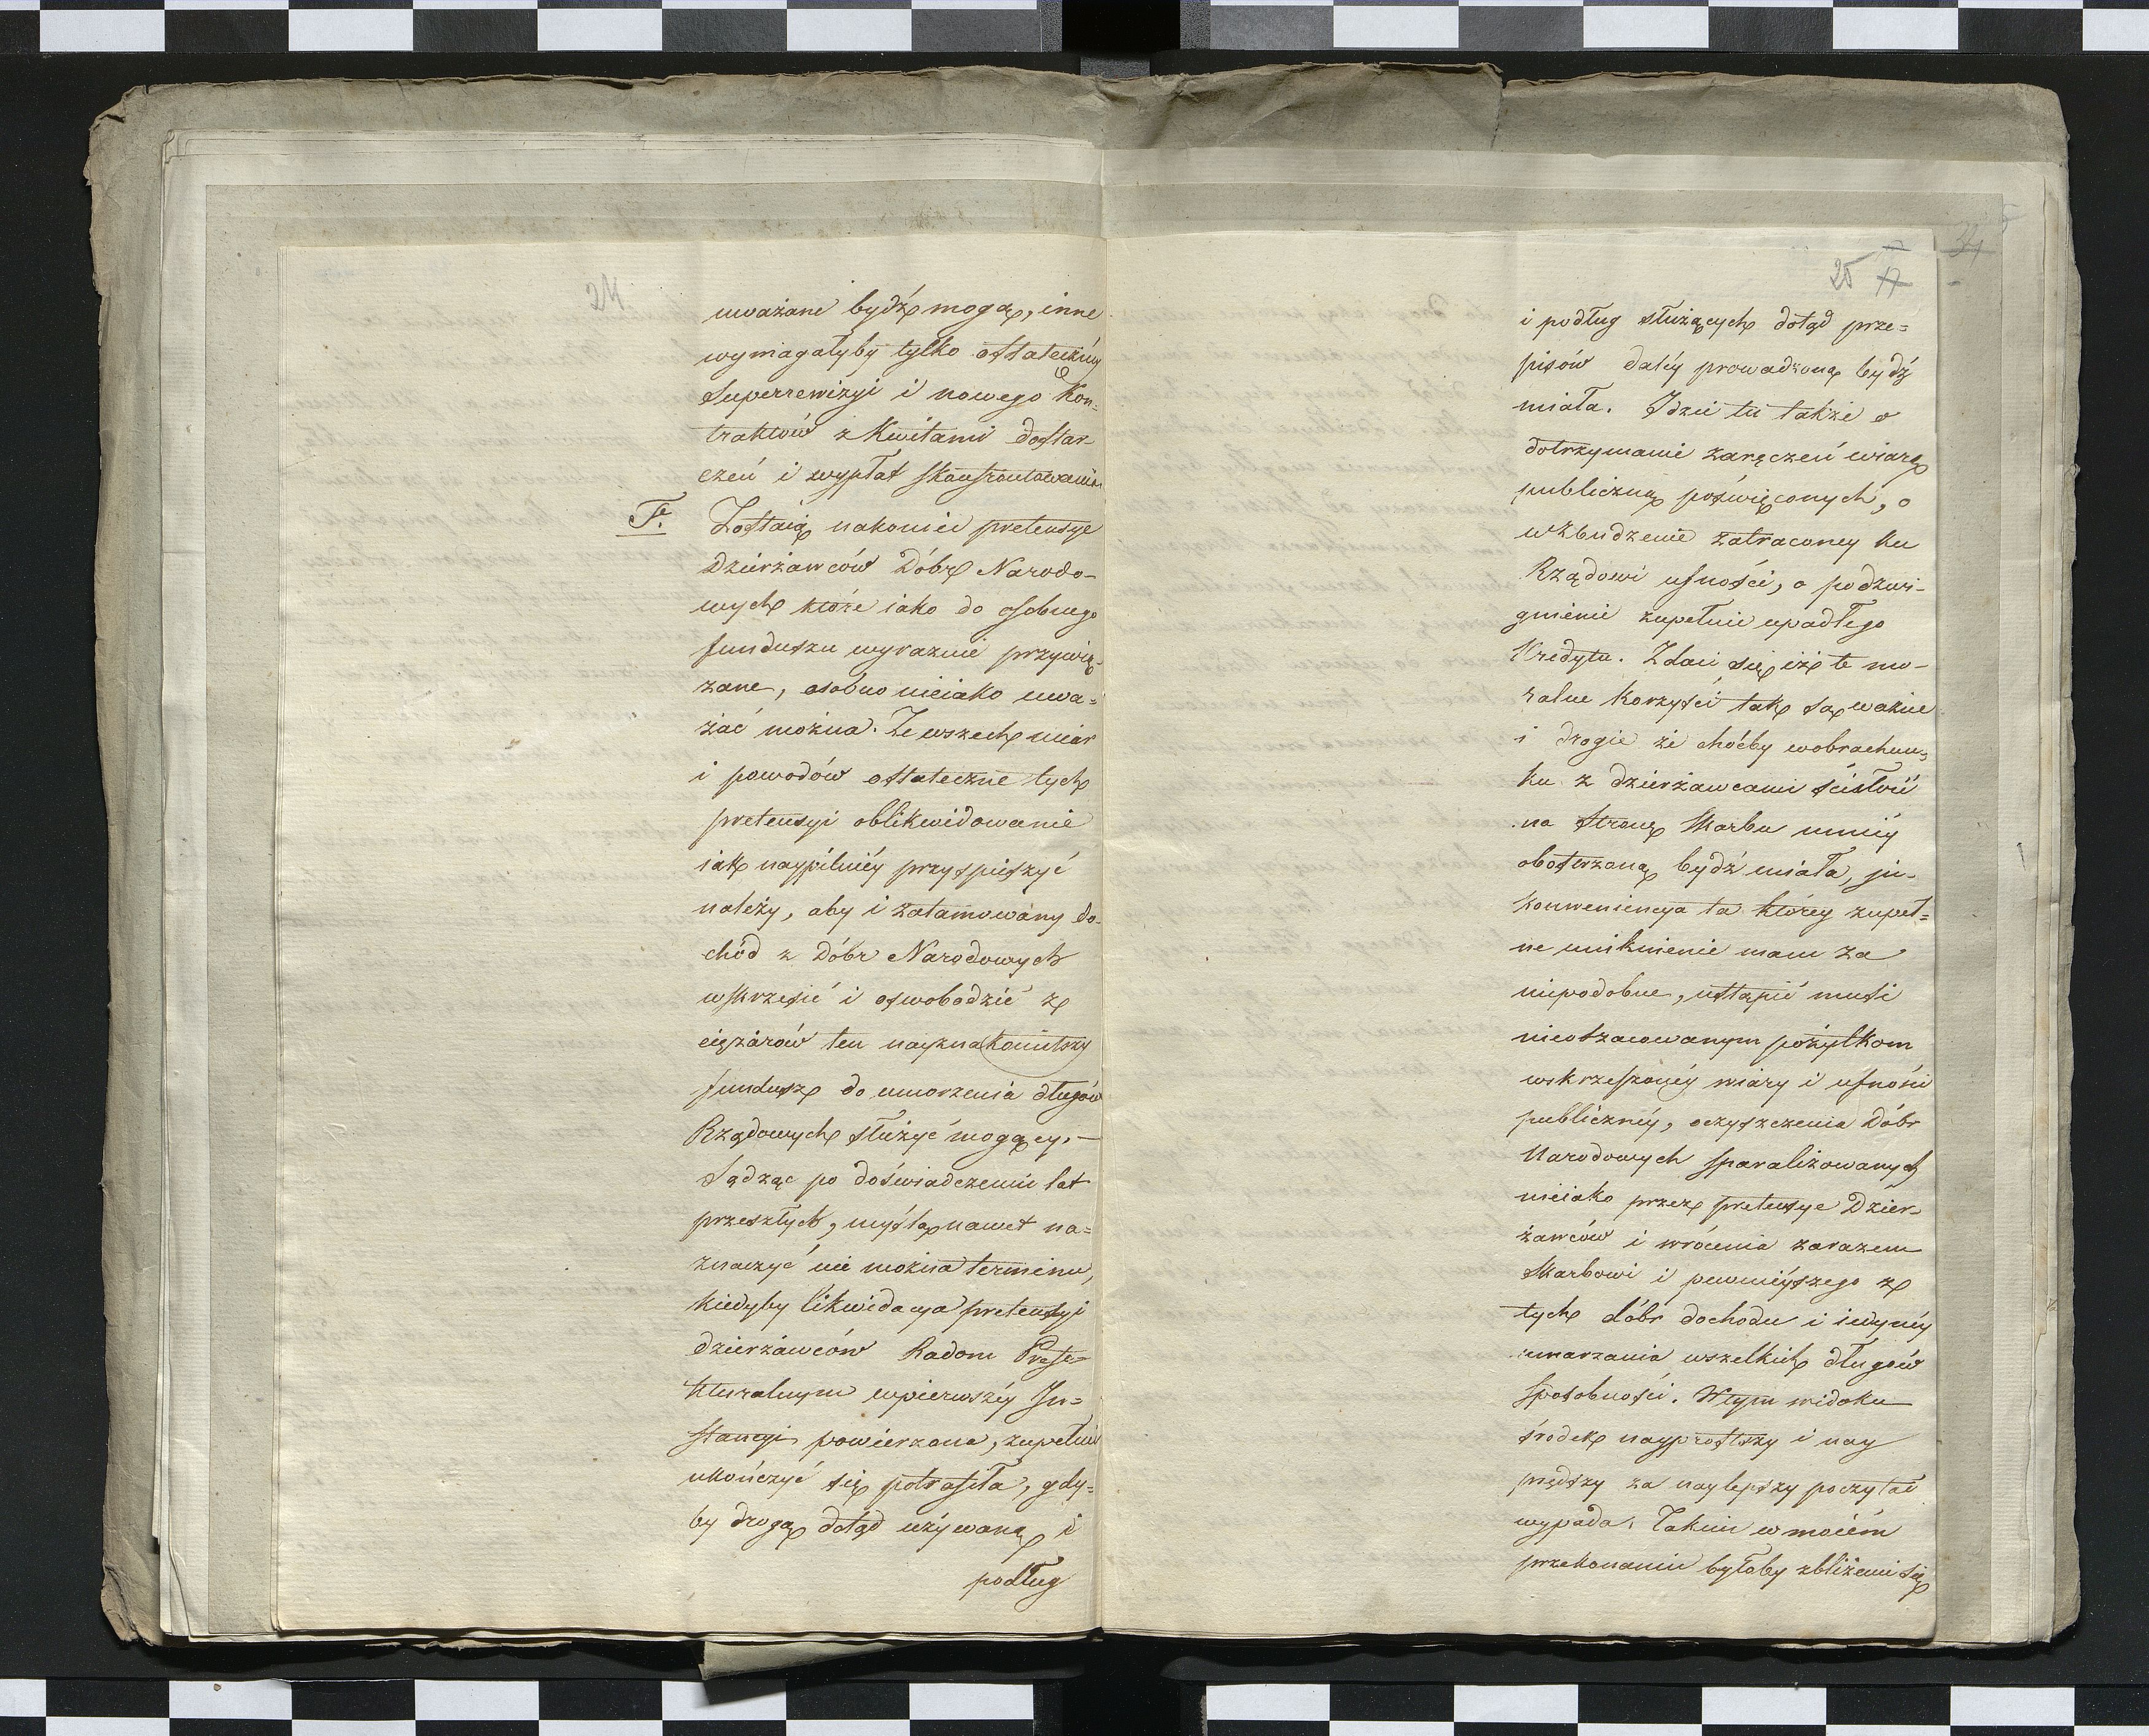 24.
uważane bydź mogą, inne
wymagałyby tylko ostateczney
Superrewizyi i nowego Kon=
traktów z Kwitami dostar
czeń i wypłat skonfrontowania
F. Zostaią nakoniec pretensye
Dzierżawców Dóbr Narodo-
wych które iako do osobnego
funduszu wyraznie przywią=
zane, osobno nieiako uwa=
żać można. Ze wszech miar
i powodów ostateczne tych
pretensyi oblikwidowanie
iak naypilniéy przyspieszyć
należy, aby i zatamowany do-
chód z Dóbr Narodowych
wskrzesić i oswobodzić z
ciężarów ten nayznakomitszy
fundusz do umorzenia długów
Rządowych służyć mogący. —
Sądząc po doświadczeniu lat
przeszłych, myślą nawet na=
znaczyć nie można terminu,
kiedyby likwidacya pretensyi
dzierżawców Radom Prefe=
kturalnym w pierwszéy In=
stancyi powierzona, zupełnie
ukończyć się potrafiła, gdy=
by drogą dotąd używaną i
podług
34
25 17
i podług służących dotąd prze=
pisów daléy prowadzoną bydź
miała. Idzie tu także o
dotrzymanie zaręczeń wiarą
publiczną poświęconych, o
wzbudzenie zatraconey ku
Rządowi ufności, o podzwi-
gnienie zupełnie upadłego
Kredytu. Zdaie się iż te mo-
ralne korzyści tak są ważne
i drogie że choćby w obrachun=
ku z dzierżawcami ścisłość
na stronę Skarbu mniéy
obostrzoną bydź miała, in-
konweniencya ta którey zupeł=
ne uniknienie mam za
niepodobne, ustąpić musi
nieoszacowanym pożytkom
wskrzeszonéy wiary i ufności
publicznéy, oczyszczenia Dóbr
Narodowych sparaliżowanych
nieiako przez pretensye Dzier-
żawców i wrócenia zarazem
Skarbowi i pewnieyszego z
tych dóbr dochodu i iedynéy
umarzania wszelkich długów
sposobności. W tym widoku
środek nayprostszy i nay
prędszy za naylepszy poczytać
wypada. Takim w moiém
przekonaniu byłoby zbliżenie się